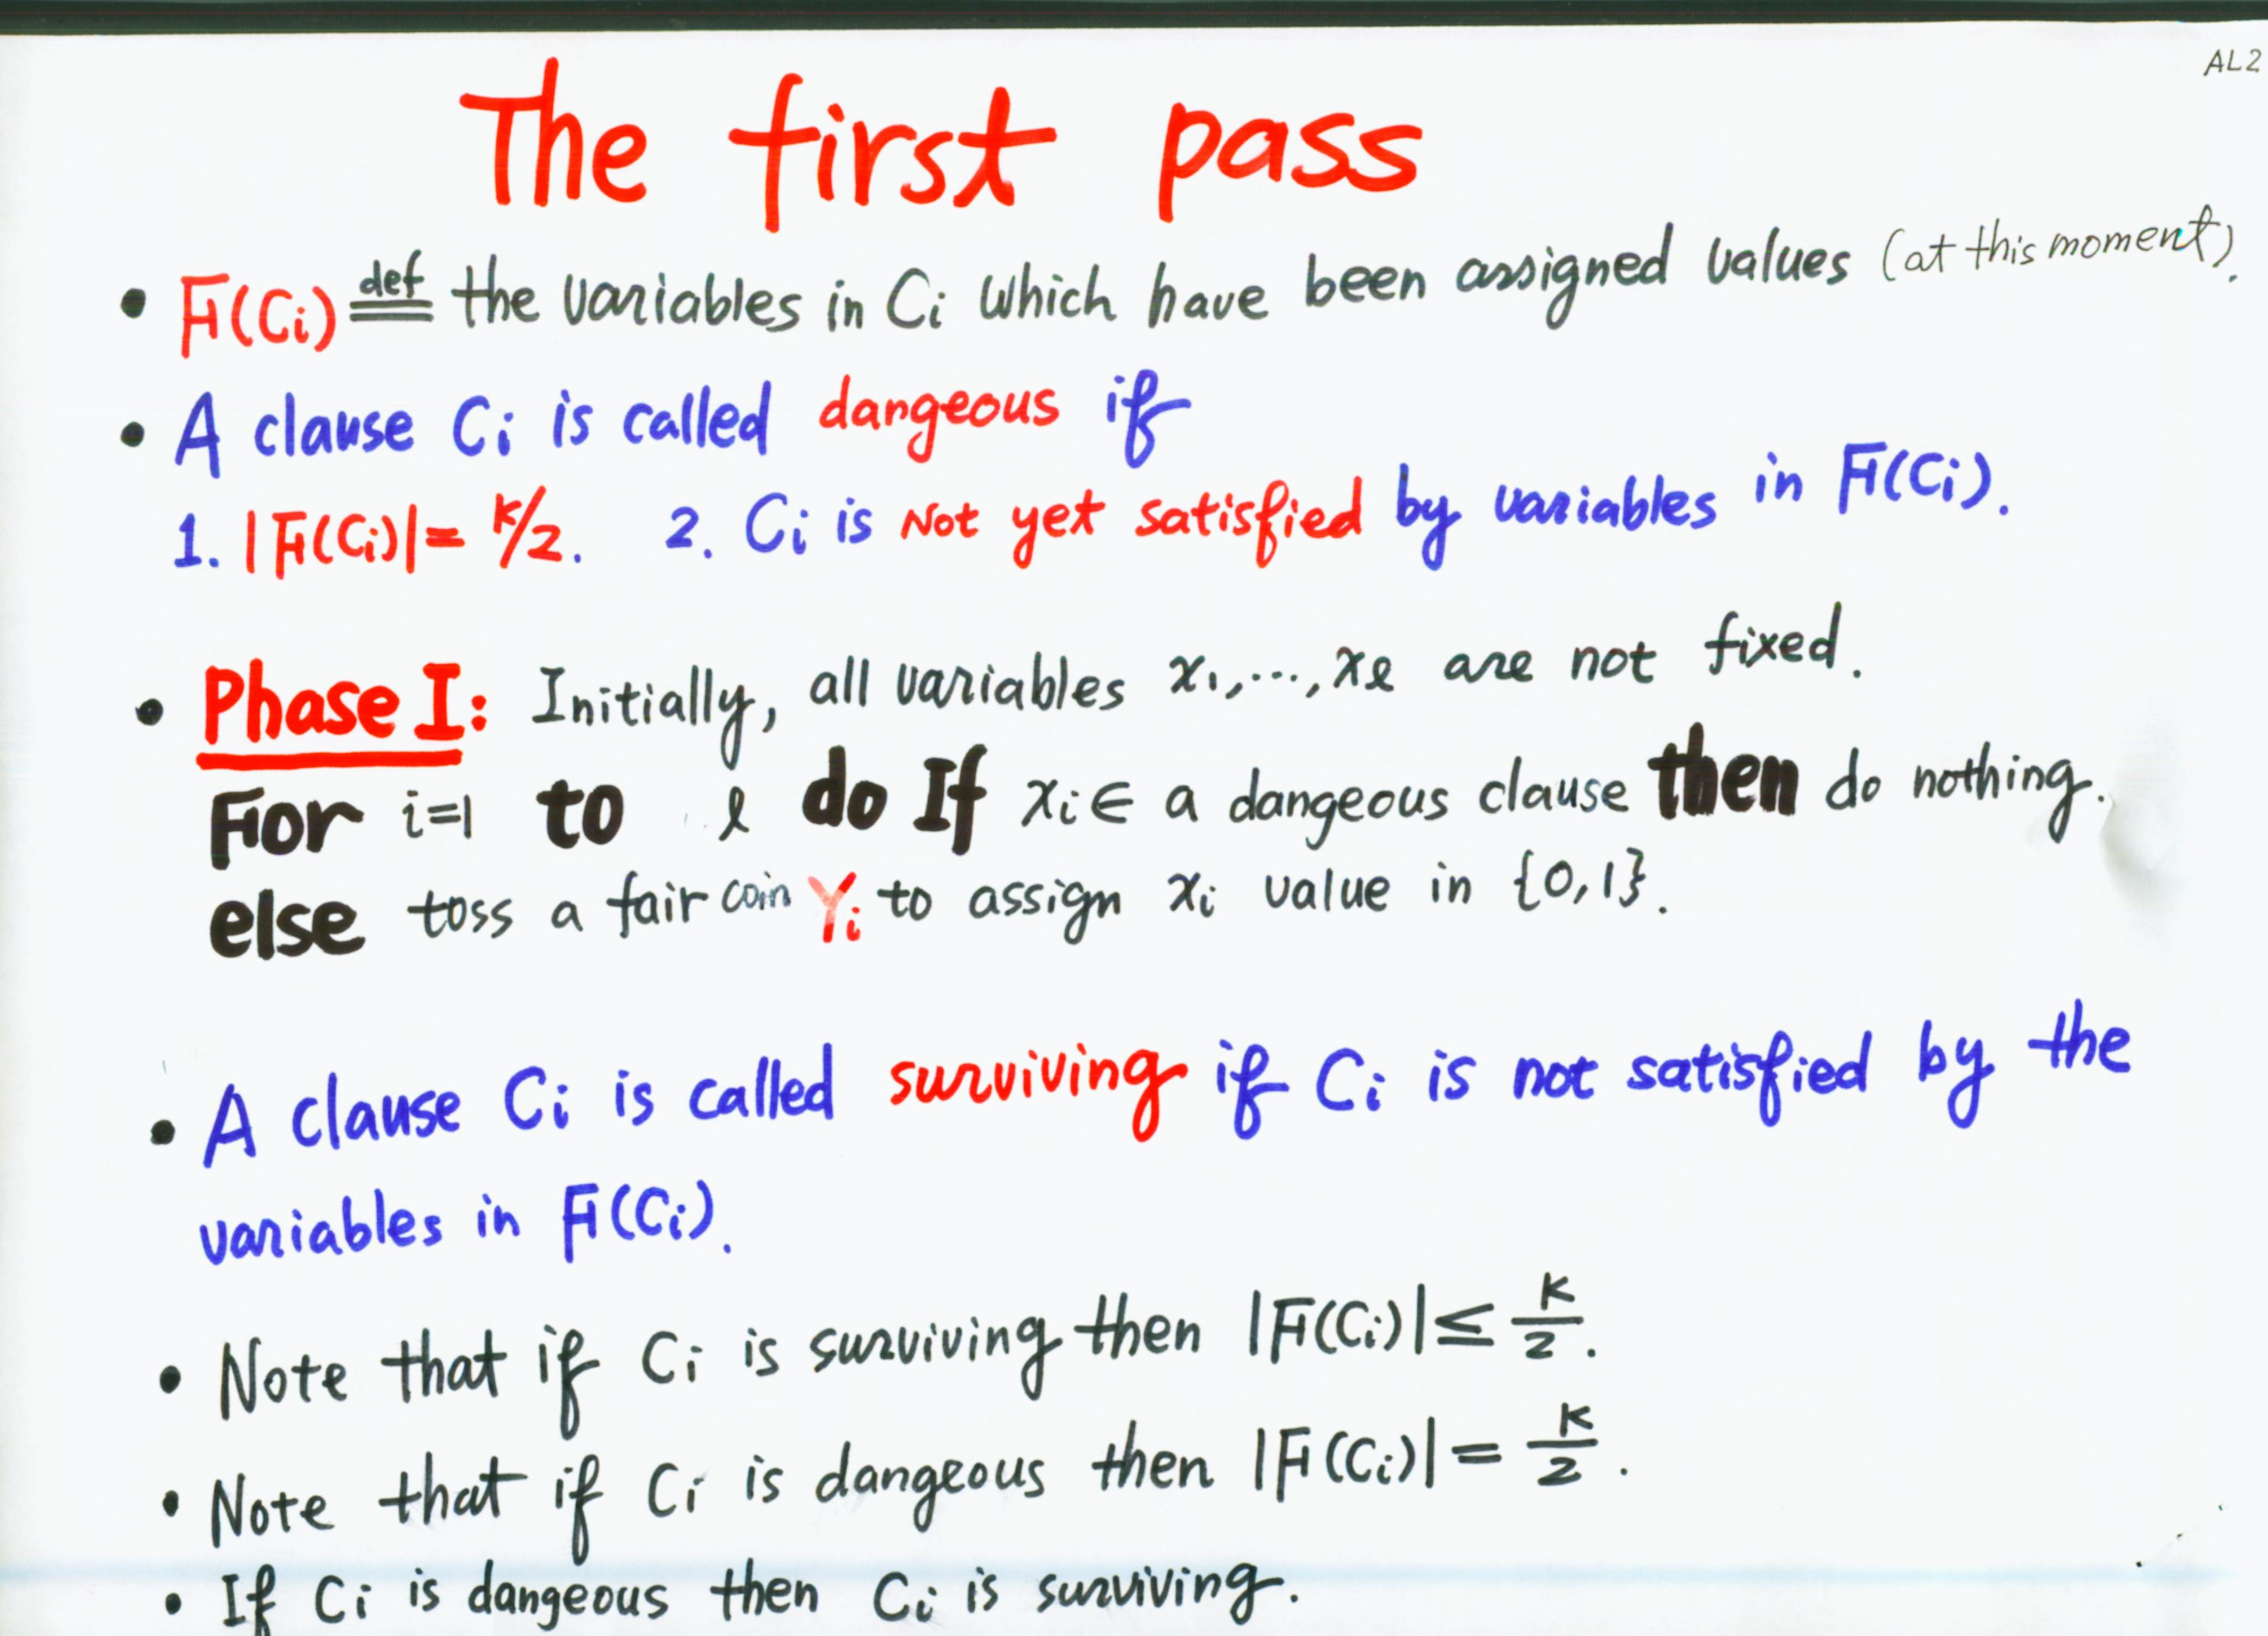 AL2
The first pass
• F(Ci) def== the variables in Ci which have been assigned values (at this moment).
• A clause Ci is called dangeous if
1. |F(Ci)| = k/2. 2. Ci is Not yet satisfied by variables in F(Ci).
• Phase I: Initially, all variables x1,...,xℓ are not fixed.
For i=1 to ℓ do If xi ∈ a dangeous clause then do nothing.
else toss a fair coin Yi to assign xi value in {0,1}.
• A clause Ci is called surviving if Ci is not satisfied by the
variables in F(Ci).
• Note that if Ci is surviving then |F(Ci)| ≤ k/2.
• Note that if Ci is dangeous then |F(Ci)| = k/2.
• If Ci is dangeous then Ci is surviving.